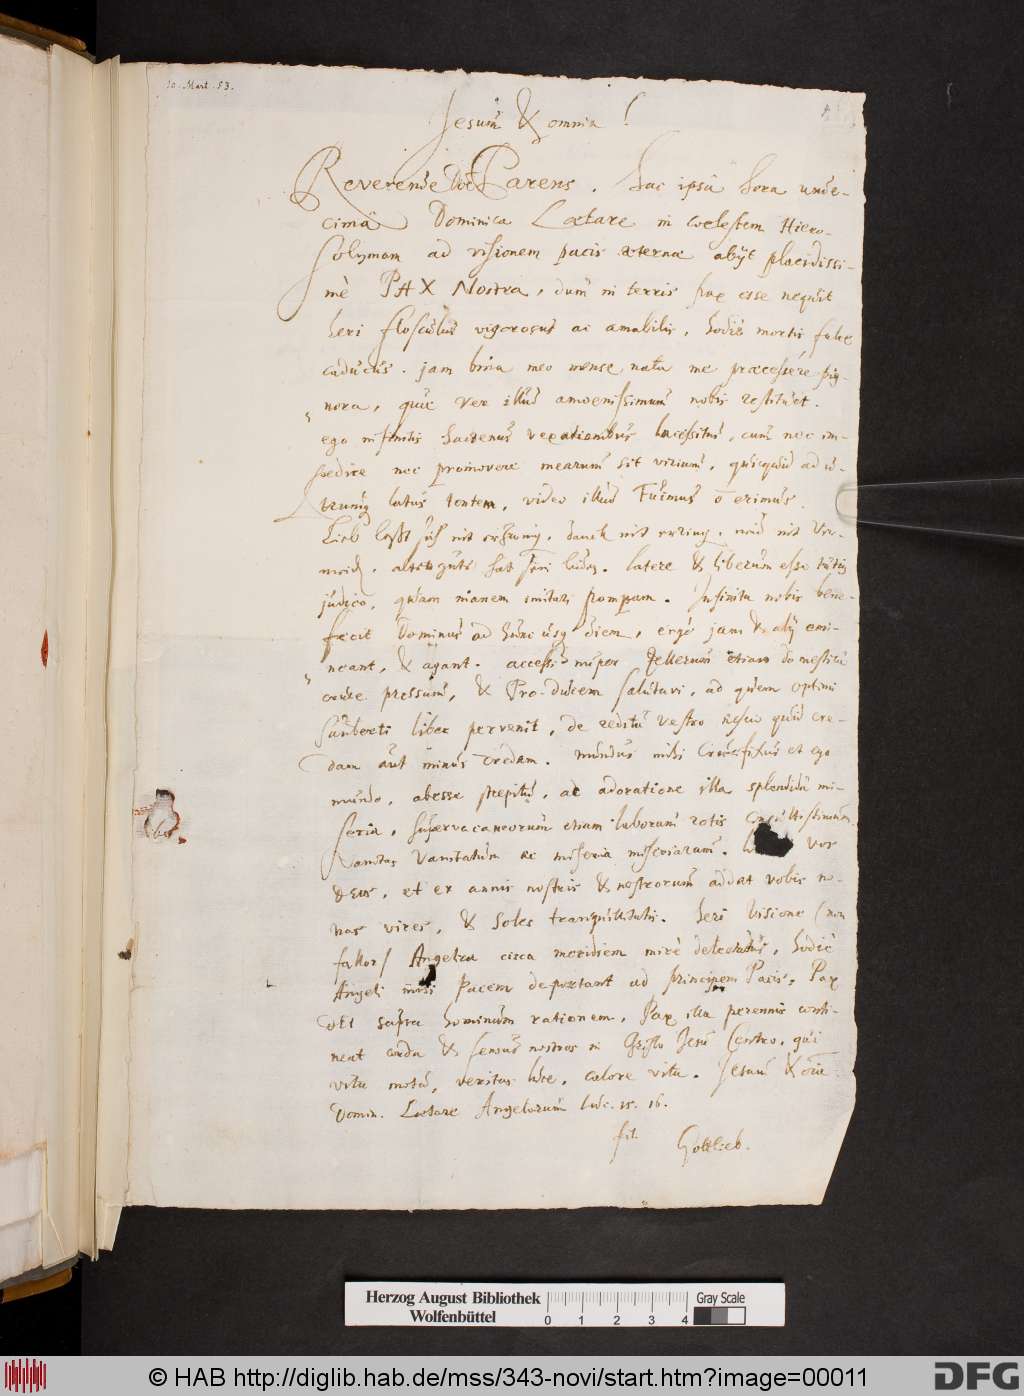 20. Mart. 53.
Jesum & omnia!
Reverende Parens. Hac ipsa hora unde-
cima Dominica Laetare in coelestem Hiero-
solymam ad visionem pacis aeternae abijt placidissi-
mè PAX Nostra, dum in terris pax esse nequit
heri flosculus vigorosus ac amabilis, hodie mortis falce
caducus. jam bina meo mense nata me praecessere pig-
nora, quae Ver illud amoenissimum nobis restituet.
ego infinitis hactenus vexationibus lacessitus, cum nec im-
pedire nec promovere mearum sit virium, quicquid ad u-
trumq latus tentem, video illud Fuimus erimus.
Lieb lesst sich nit, danck nit, neid nit Ver-
meid. latere & liberum esse tutius
judico, quam inanem imitari pompam. Infinita nobis bene-
fecit Dominus ad hunc usq diem, ergo jam & alij emi-
neant, & agant. accessi nuper etiam domestica
cruce pressum, & Pro-Ducem salutavi, ad quem optimi
Sauberti liber pervenit, de reditu vestro nescio quid cre-
dam aut minus credam. Mundus mihi Crucifixus et ego
mundo, abesse strepitus, ac adoratione illa splendida mi-
seria, supervacaneorum etiam laborum
Vanitas Vanitatum ac miseria miseriarum. vos
Deus, et ex annis nostris & nostrorum addat vobis no-
vas vires, & Soles tranquillitatis. heri Visione (non
fallor) Angelica circa meridiem mirè delectatus, hodiè
Angeli mihi Pacem deportant ad principem Pacis, Pax
DEI supra hominum rationem, Pax illa perennis conti-
neat corda & sensus nostros in Christo Jesu Centro, qui
vita motu, veritas luce, calore vita. Jesum & omnia
Domin. Laetare Angelorum Luc. 15. 16.
fil. Gottlieb.
Herzog August Bibliothek
Wolfenbüttel
0 1 2 3 4
Gray Scale
© HAB http://diglib.hab.de/mss/343-novi/start.htm?image=00011
DFG